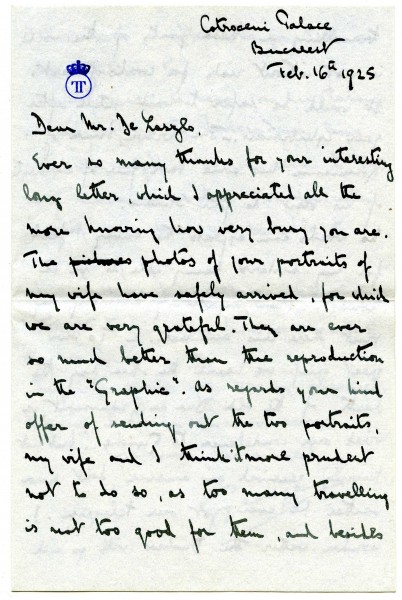 Cotroceni Palace
Bucarest
Feb. 16th 1925
Dear Mr. De Laszlo,
Ever so many thanks for your interesting
long letter, which I appreciated all the
more knowing how very busy you are.
The pictures photos of your portraits of
my wife have safely arrived, for which
we are very grateful. They are ever
so much better than the reproduction
in the "Graphic". As regards your kind
offer of sending out the two portraits,
my wife and I think it more prudent
not to do so, as too many travelling
is not too good for them, and besides